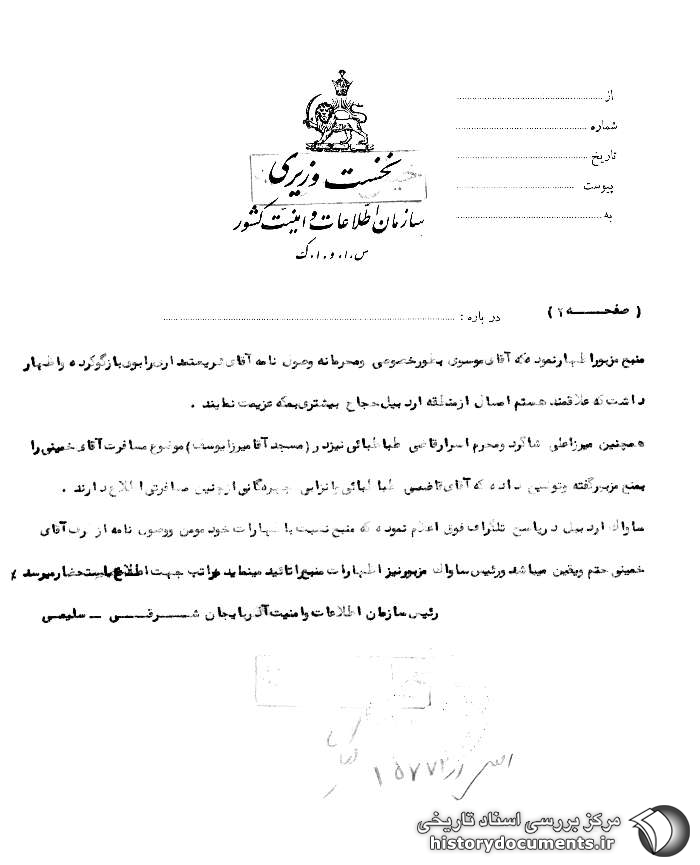 از
شماره
تاریخ
پیوست
به
نخست وزیری
سازمان اطلاعات و امنیت کشور
س.ا.و.ا.ک
( صفحه ۲ )
در باره :
منبع مزبور اظهار نموده که آقای موسوی بطور خصوصی و محرمانه وصول نامه آقای شریعتمداری را بوی بازگو کرده و اظهار
داشت که علاقمند هستم امسال از منطقه اردبیل حجاج بیشتری بمکه عزیمت نمایند .
همچنین میرزاعلی شاگرد و محرم اسرار قاضی طباطبائی نیز در (مسجد آقا میرزا یوسف) موضوع مسافرت آقای خمینی را
بمنبع مزبور گفته و توضیح داده که آقای قاضی طباطبائی با نزاهی از چنین مسافرتی اطلاع دارند .
ساواک اردبیل در پاسخ تلگراف فوق اعلام نموده که منبع نسبت با ظهارات خود مومن ووصول نامه از طرف آقای
خمینی حتم ویقین میباشد ورئیس ساواک مزبور نیز اظهارات منبع را تائید مینماید مراتب جهت اطلاع باستحضار میرسد ٪
رئیس سازمان اطلاعات وامنیت آذربایجان شرقی ـ سلیمی
۱۵۷۷۲
مرکز بررسی اسناد تاریخی
historydocuments.ir